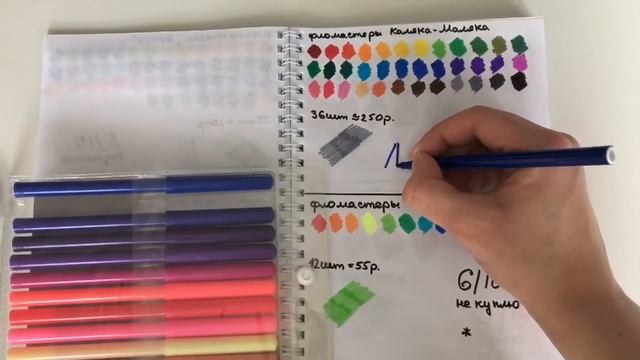 фломастеры Каляка-Маляка
36шт ≈ 250р.
фломастеры
12шт = 55р.
6/10
не куплю
*